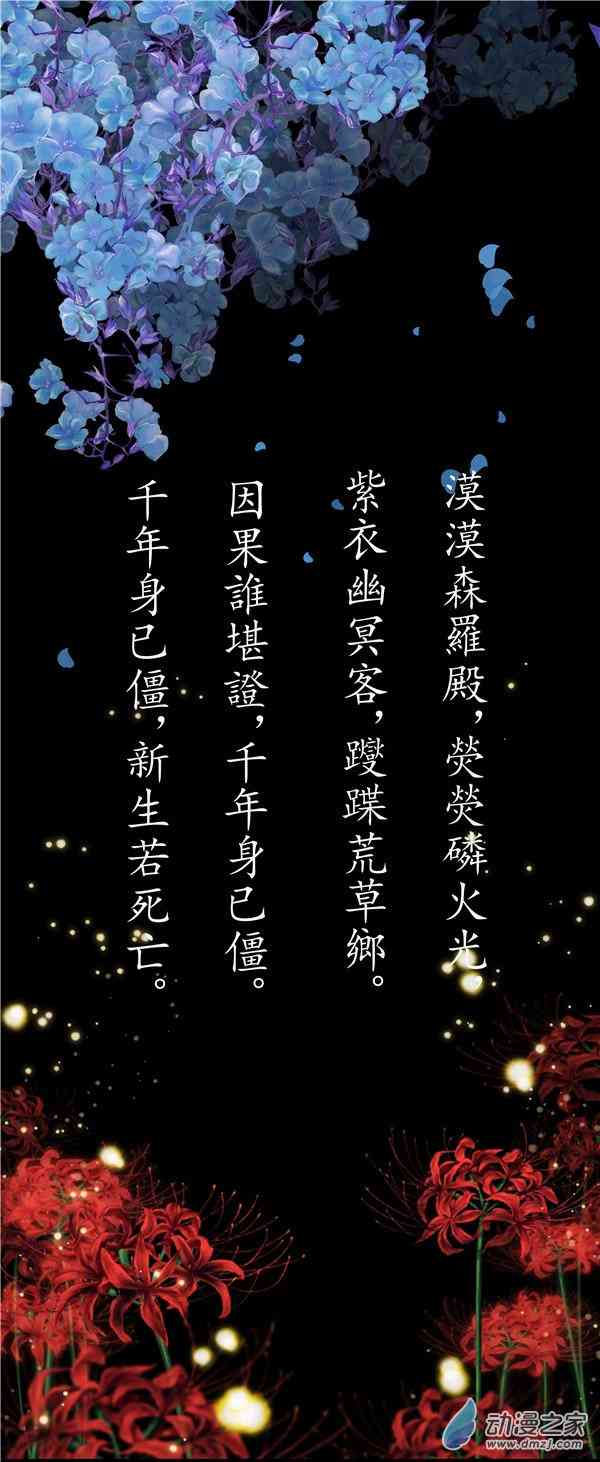 漠漠森羅殿，熒熒磷火光，
紫衣幽冥客，躞蹀荒草鄉。
因果誰堪證，千年身已僵。
千年身已僵，新生若死亡。
动漫之家
www.dmzj.com